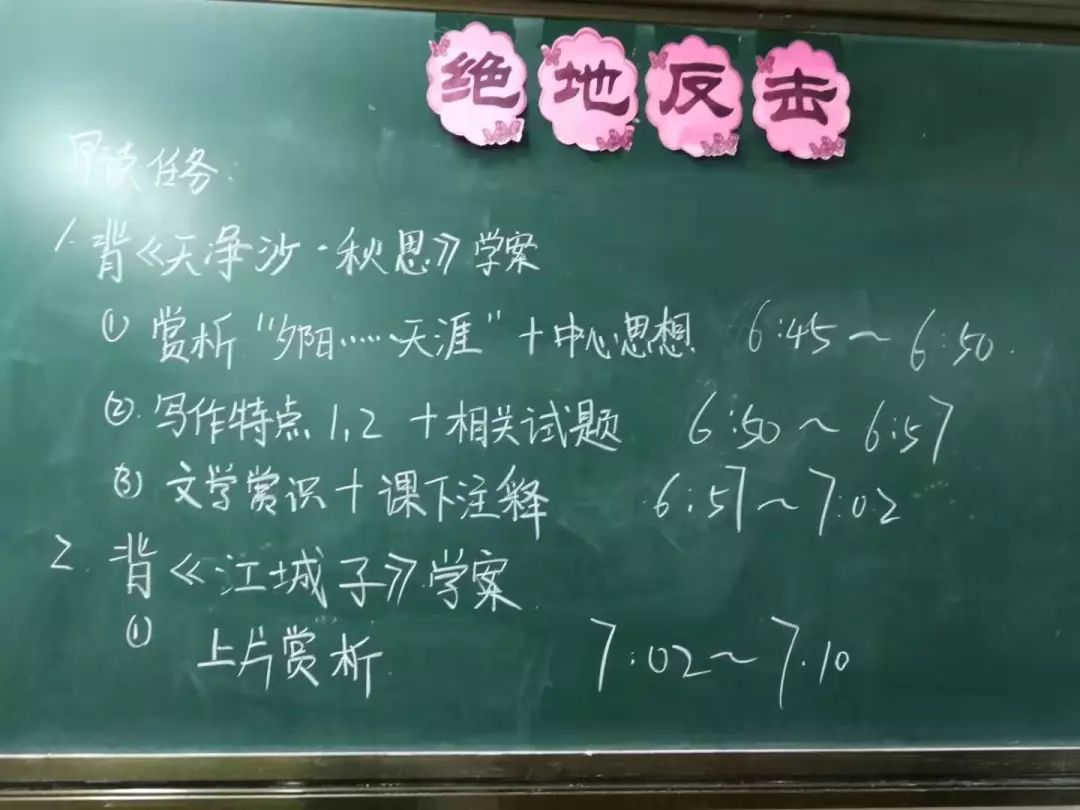 绝地反击
早读任务：
1. 背《天净沙·秋思》学案
① 赏析“夕阳……天涯”+中心思想 6:45～6:50.
②. 写作特点1,2 +相关试题 6:50～6:57
③ 文学赏识+课下注释 6:57～7:02
2. 背《江城子》学案
① 上片赏析 7:02～7.10